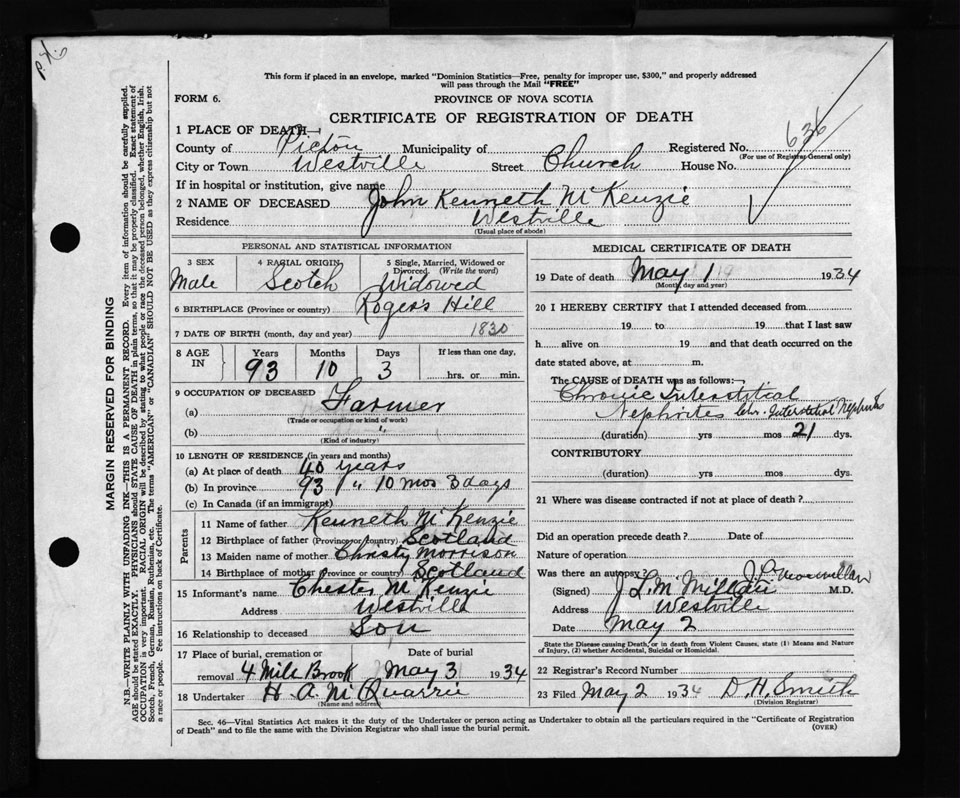 This form if placed in an envelope, marked "Dominion Statistics—Free, penalty for improper use, $300," and properly addressed
will pass through the Mail "FREE"
FORM 6.
PROVINCE OF NOVA SCOTIA
CERTIFICATE OF REGISTRATION OF DEATH
636
1 PLACE OF DEATH—
County of Pictou Municipality of Registered No.
(For use of Registrar General only)
City or Town Westville Street Church House No.
If in hospital or institution, give name
2 NAME OF DECEASED John Kenneth McKenzie
Residence Westville
(Usual place of abode)
PERSONAL AND STATISTICAL INFORMATION
3 SEX 4 RACIAL ORIGIN 5 Single, Married, Widowed or
Divorced. (Write the word)
Male Scotch Widowed
6 BIRTHPLACE (Province or country) Rogers Hill
7 DATE OF BIRTH (month, day and year) 1830
8 AGE IN Years Months Days If less than one day,
93 10 3 hrs. or min.
9 OCCUPATION OF DECEASED
(a) Farmer
(Trade or occupation or kind of work)
(b) "
(Kind of industry)
10 LENGTH OF RESIDENCE (in years and months)
(a) At place of death 40 years
(b) In province 93 " 10 mos 3 days
(c) In Canada (if an immigrant)
Parents
11 Name of father Kenneth McKenzie
12 Birthplace of father (Province or country) Scotland
13 Maiden name of mother Christy Morrison
14 Birthplace of mother (Province or country) Scotland
15 Informant's name Chester McKenzie
Address Westville
16 Relationship to deceased Son
17 Place of burial, cremation or Date of burial
removal 4 Mile Brook May 3 1934
18 Undertaker H A McQuarrie
(Name and address)
MEDICAL CERTIFICATE OF DEATH
19 Date of death May 1 1934
(Month, day and year)
20 I HEREBY CERTIFY that I attended deceased from
19 to 19 that I last saw
h alive on 19 and that death occurred on the
date stated above, at m.
The CAUSE OF DEATH was as follows:—
Chronic Interstitial
Nephrites Chr. Interstitial Nephritis
(duration) yrs mos 21 dys.
CONTRIBUTORY
(duration) yrs mos dys.
21 Where was disease contracted if not at place of death?
Did an operation precede death? Date of
Nature of operation
Was there an autopsy?
(Signed) J L McMillan M.D.
Address Westville
Date May 2
State the Disease causing Death, or in death from Violent Causes, state (1) Means and
Nature of Injury, (2) whether Accidental, Suicidal or Homicidal.
22 Registrar's Record Number
23 Filed May 2 1934 D. H. Smith
(Division Registrar)
Sec. 46—Vital Statistics Act makes it the duty of the Undertaker or person acting as Undertaker to obtain all the particulars required in the "Certificate of Registration
of Death" and to file the same with the Division Registrar who shall issue the burial permit.
(OVER)
MARGIN RESERVED FOR BINDING
N.B.—WRITE PLAINLY WITH UNFADING INK—THIS IS A PERMANENT RECORD. Every item of information should be carefully supplied.
AGE should be stated EXACTLY. PHYSICIANS should STATE CAUSE OF DEATH in plain terms, so that it may be properly classified. Exact statement of
OCCUPATION is very important. RACIAL ORIGIN will be described by stating to what people or race the deceased person belonged, whether English, Irish,
Scotch, French, German, Russian, Ruthenian, etc. The terms "AMERICAN" or "CANADIAN" SHOULD NOT BE USED as they express citizenship but not
a race or people. See instructions on back of Certificate.